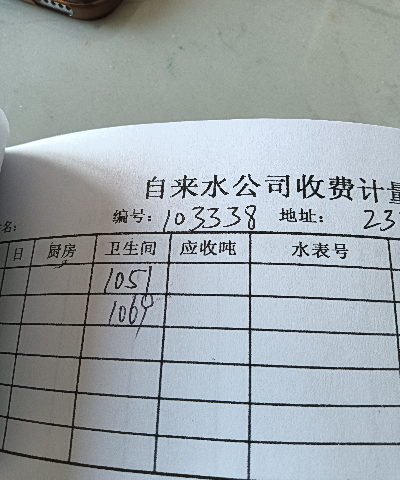 自来水公司收费计量
名： 编号：103338 地址：23
日 厨房 卫生间 应收吨 水表号
1051
1069